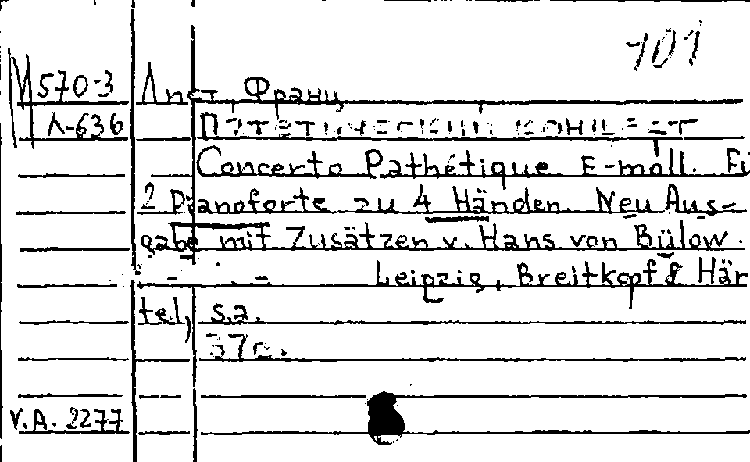 101
М570-3 Лист, Франц
Л-636 ПАТЕТИЧЕСКИЙ КОНЦЕРТ
Concerto Pathétique E-moll. Fü
2 Pianoforte zu 4 Händen. Neu Aus-
gabe mit Zusätzen v. Hans von Bülow.
Leipzig, Breitkopf & Här
tel, s.a.
37с.
V.A. 2277